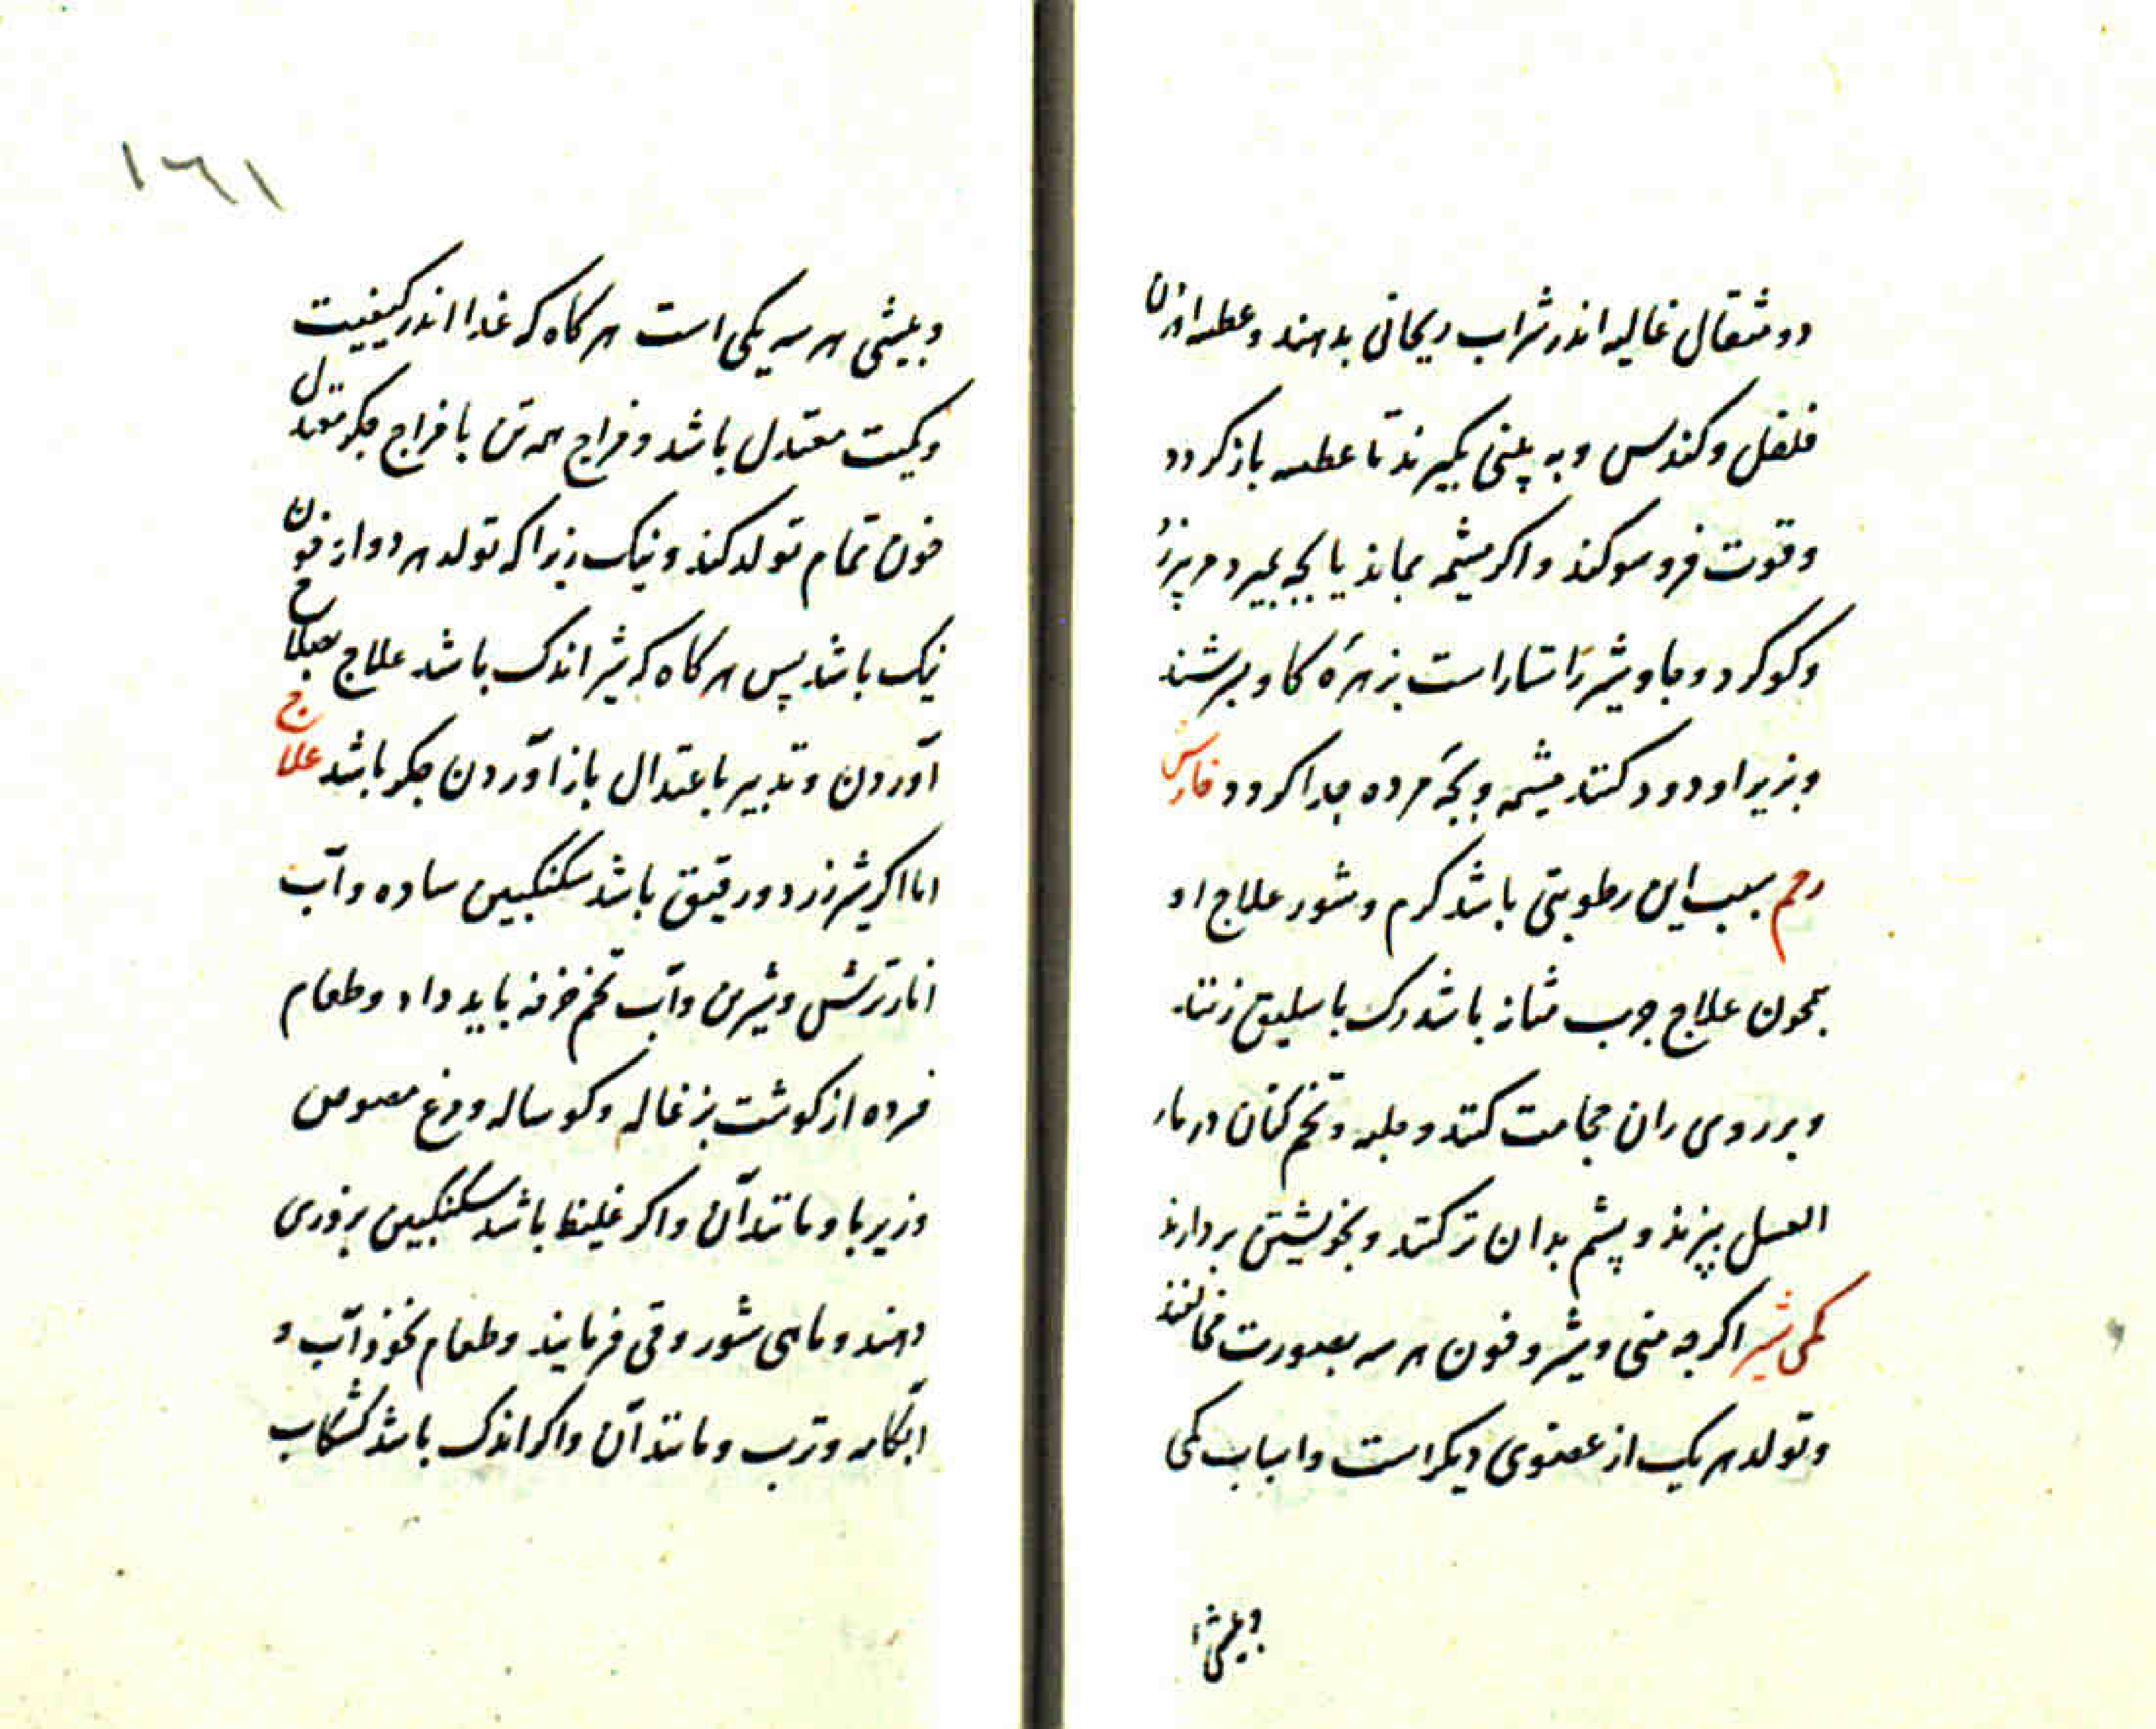 دو مثقال غالیه اندر شراب ریحانی بدهند و عطسه
فلفل و کندس و به بینی بگیرند تا عطسه باز کردد
وقوت فرو سو کند و اکر مشیمه بماند یا بچه بمیرد
وکوکرد و جاوشیر راستاراست بزهرهٔ کاو بسرشند
وبزیر او دود کنند مشیمه و بچهٔ مرده جدا کردد فارش
رحم بسبب این رطوبتی باشد کرم و شور علاج او
همچون علاج جرب مثانه باشد رک باسلیق زنند
وبر روی ران حجامت کنند و حلبه و تخم کتان در ماء
العسل بپزند و پشم بدان تر کنند و بخویشتن بردارند
کمی شیر اکرچه منی و شیر و خون هر سه بصورت مخالفند
وتولد هر یک از عضوی دیکر است و اسباب کمی
وبیشی
١٦١
وبیشی هر سه یکی است هر کاه که غذا اندر کیفیت
وکمیت معتدل باشد و مزاج همه تن با مزاج جکر معتدل
خون تمام تولد کند و نیک زیرا که تولد هر دو از خون
نیک باشد پس هر کاه که شیر اندک باشد علاج بصلاح
آوردن و تدبیر باعتدال باز آوردن جکر باشد علاج
اما اکر شیر زرد و رقیق باشد سکنکبین ساده و آب
انار ترش و شیرین و آب تخم خرفه باید داد و طعام
مزوره از کوشت بزغاله و کوساله و مرغ مصوص
وزیربا و مانند آن و اکر غلیظ باشد سکنکبین بزوری
دهند و ماهی شور و قی فرمایند و طعام نخوذآب و
آبکامه و ترب و مانند آن و اکر اندک باشد کشکاب